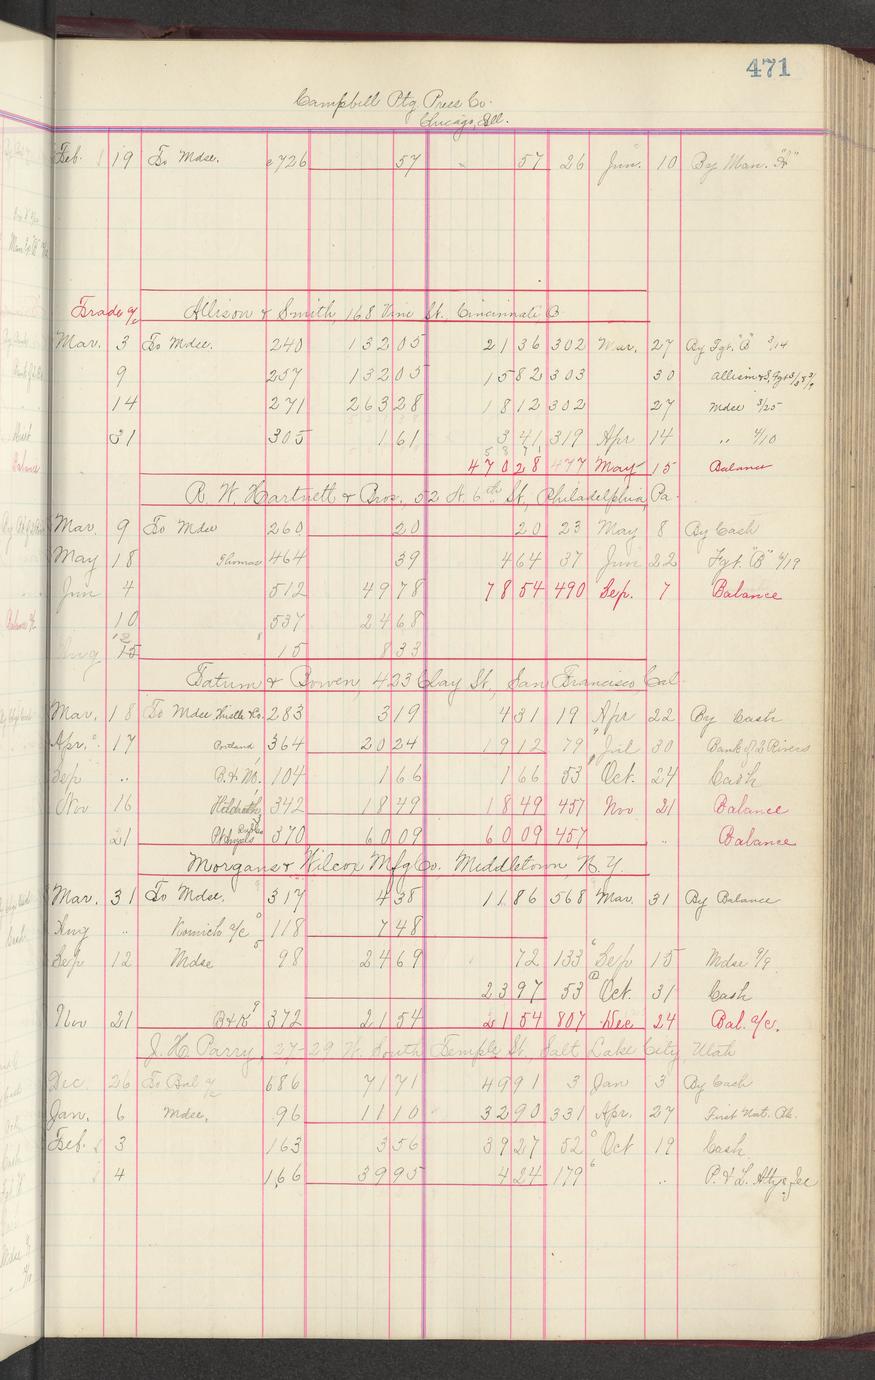 471
Campbell Ptg. Press Co.
Chicago, Ill.
Feb. 19 To Mdse. 726 57 57 26 Jun. 10 By Man. "A"
Trade a/c Allison & Smith, 168 Vine St. Cincinnati, O.
Mar. 3 To Mdse. 240 132 05 21 36 302 Mar. 27 By Fgt. "B" 3/14
9 257 132 05 15 82 303 30 Allison & S.
14 271 263 28 18 12 302 27 Mdse 3/25
31 305 1 61 3 41 319 Apr 14 " 4/10
470 28 477 May 15 Balance
R. W. Hartnett & Bros., 52 N. 6th St., Philadelphia, Pa.
Mar. 9 To Mdse 260 20 20 23 May 8 By Cash
May 18 Thomas 464 39 4 64 37 Jun 22 Fgt. "B" 4/19
Jun 4 512 49 78 78 54 490 Sep. 7 Balance
10 537 24 68
Aug 15 15 8 33
Tatum & Bowen, 423 Clay St., San Francisco, Cal.
Mar. 18 To Mdse 283 3 19 4 31 19 Apr 22 By Cash
Apr. 17 Portland 364 20 24 19 12 79 Jul 30 Bank of 2 Rivers
Sep " B. & No. 104 1 66 1 66 53 Oct. 24 Cash
Nov 16 Hildreth 342 18 49 18 49 457 Nov 21 Balance
21 370 60 09 60 09 457 " Balance
Morgans & Wilcox Mfg Co. Middletown, N. Y.
Mar. 31 To Mdse. 317 4 38 11 86 568 Mar. 31 By Balance
Aug " Norwich a/c 118 7 48
Sep 12 Mdse 98 24 69 72 133 Sep 15 Mdse 9/9
23 97 53 Oct. 31 Cash
Nov 21 B & K 372 21 54 21 54 807 Dec 24 Bal. a/c.
J. H. Parry, 27-29 W. South Temple St., Salt Lake City, Utah
Dec. 26 To Bal a/c 686 71 71 49 91 3 Jan 3 By Cash
Jan. 6 Mdse. 96 11 10 32 90 331 Apr. 27 First Nat. Bk.
Feb. 3 163 3 56 39 27 52 Oct 19 Cash
4 166 39 95 4 24 179 " P. & L. Attys Fee